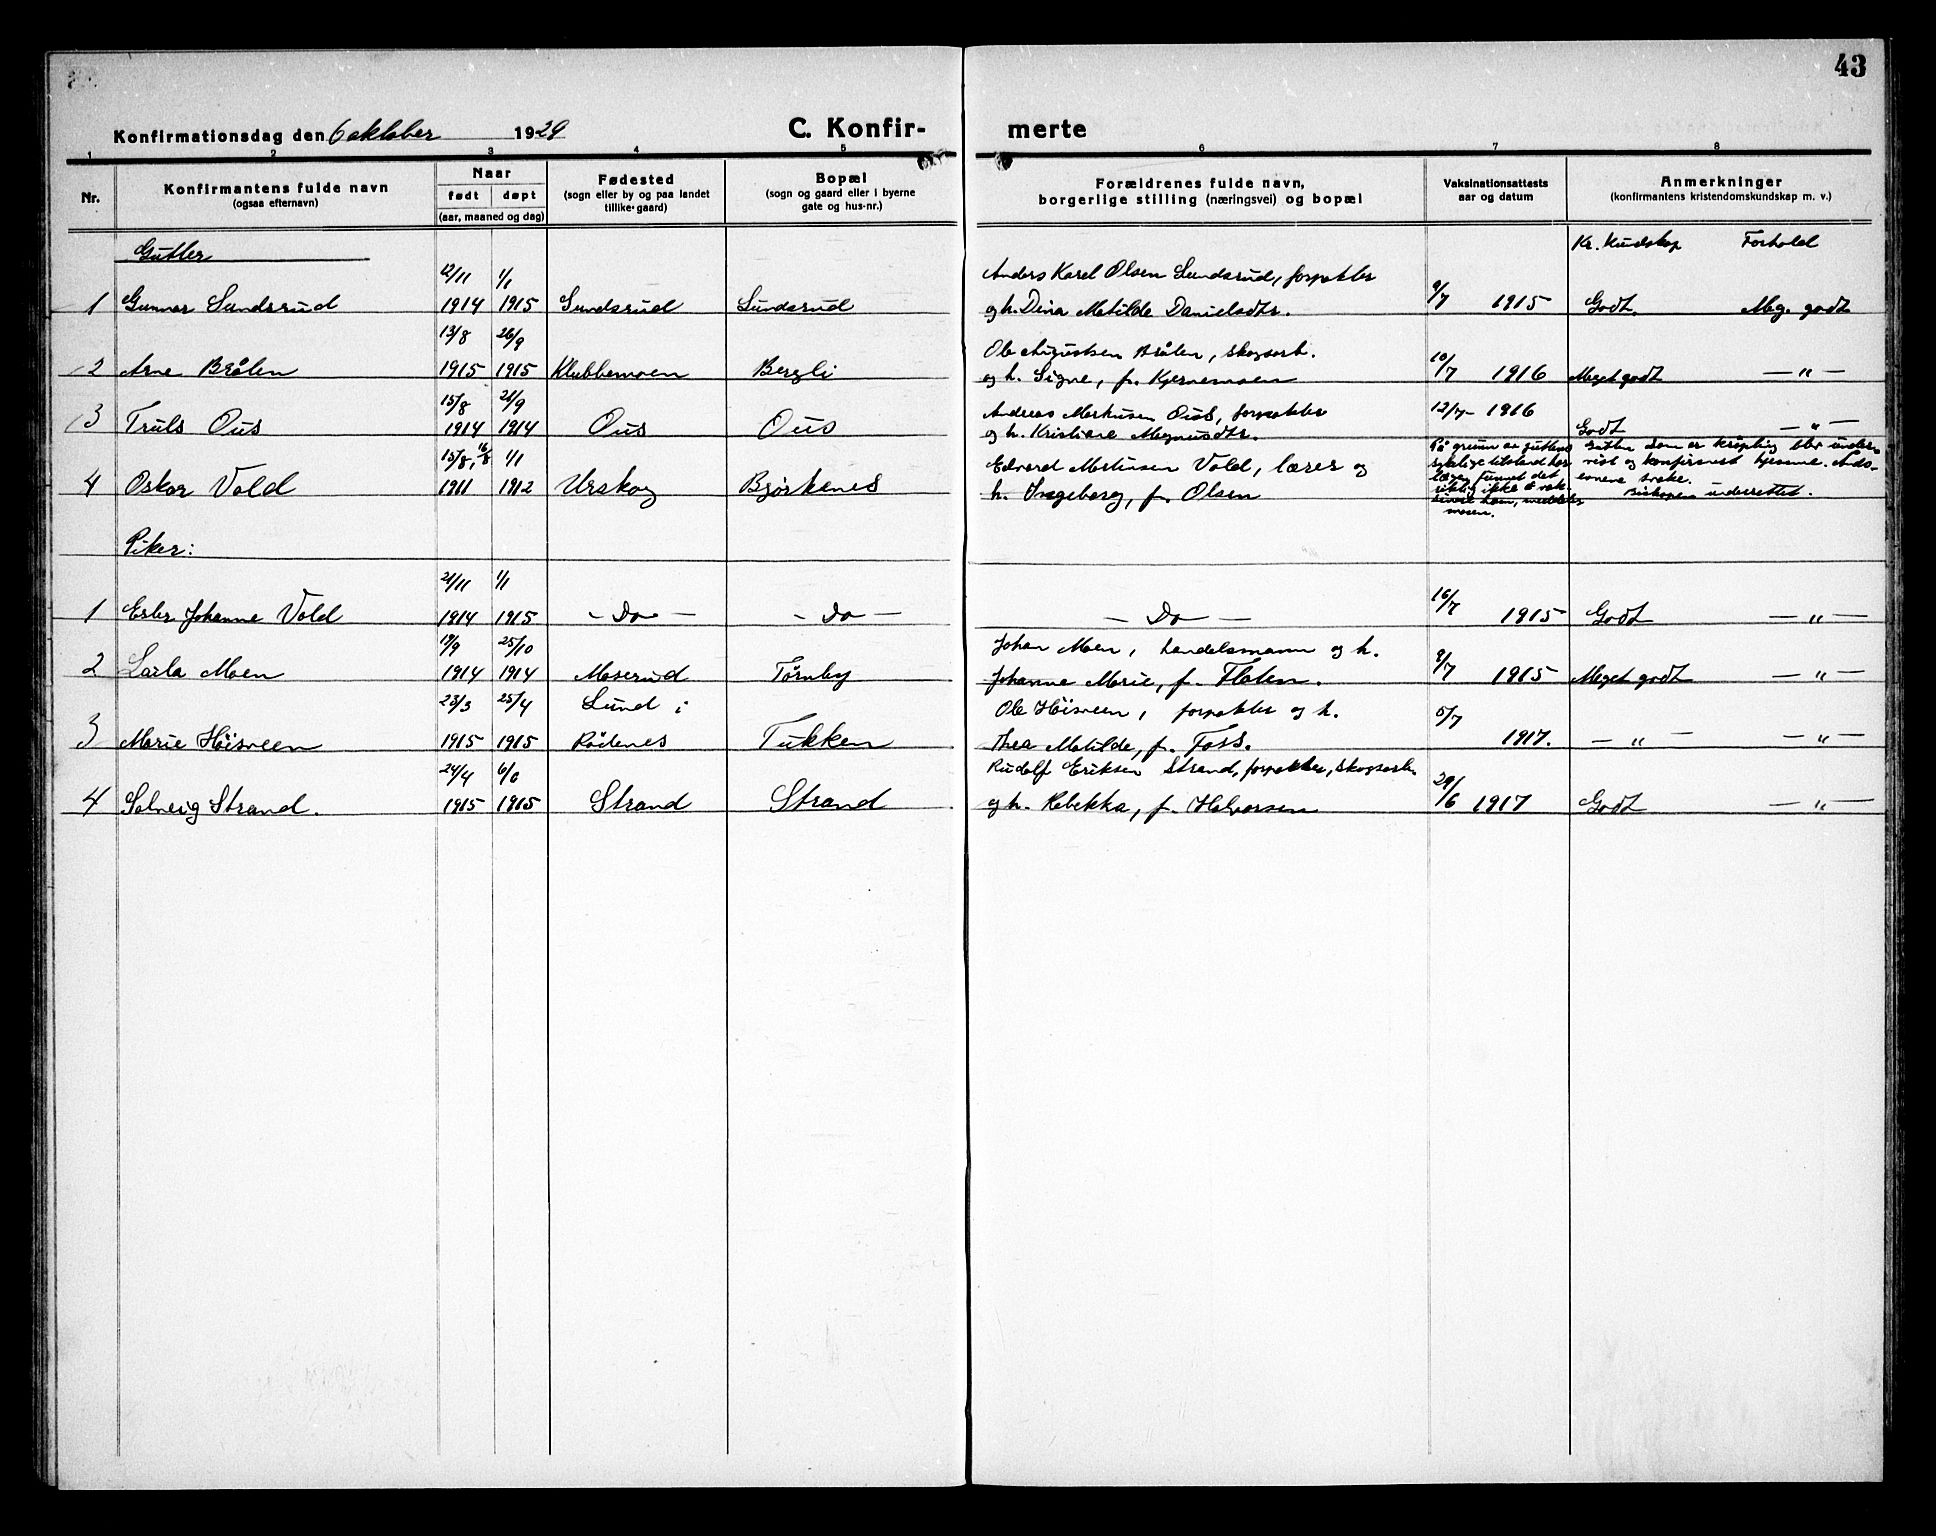 43
Konfirmationsdag den 6 oktober 1929
C. Konfir-
merte
1 2 3 4 5 6 7 8
Nr.
Konfirmantens fulde navn
(ogsaa efternavn)
Naar
født døpt
(aar, maaned og dag)
Fødested
(sogn eller by og paa landet
tillike gaard)
Bopæl
(sogn og gaard eller i byerne
gate og hus-nr.)
Forældrenes fulde navn,
borgerlige stilling (næringsvei) og bopæl
Vaksinationsattests
aar og datum
Anmerkninger
(konfirmantens kristendomskundskap m. v.)
Gutter
Kr. Kundskap Forhold
12/11 1/1 Anders Karel Olsen Sundsrud, forpakter
1 Gunnar Sundsrud 1914 1915 Sundsrud Sundsrud og h. Dina Matilde Danielsdtr. 9/7 1915 Godt. Meg. godt
13/8 26/9 Ole Augustsen Bråten, skogsarb.
2 Arne Bråten 1915 1915 Klubbemoen Bergli og h. Signe, f. Kjernemoen 10/7 1916 Meget godt — " —
15/8 21/9 Andreas Markusen Ous, forpakter 12/7 - 1916
3 Truls Ous 1914 1914 Ous Ous og h. Kristiane Magnusdtr. Godt — " —
15/8, 16/8 1/1 Edvard Martinsen Vold, lærer og
4 Oskar Vold 1911 1912 Urskog Bjørkenes h. Ingeborg, f. Olsen
På grunn av guttens
sykelige tilstand har
lægen funnet det
riktig ikke å vak-
sinere ham, meddeles
Gutten som er krøpling blev under-
vist og konfirmert hjemme. Ånds-
evnene svake.
Biskopen underrettet.
Piker:
21/11 1/1
1 Ester Johanne Vold 1914 1915 - Do - - Do - - Do - 16/7 1915 Godt — " —
19/9 25/10 Johan Moen, handelsmann og h.
2 Laila Moen 1914 1914 Moserud Tørnby Johanne Marie, f. Floten. 9/7 1915 Meget godt — " —
23/3 25/4 Lund i Ole Höisveen, forpakter og h. 5/7
3 Marie Höisveen 1915 1915 Rødenes Tukken Thea Matilde, f. Foss. 1917. — " — — " —
24/4 6/6 Rudolf Eriksen Strand, forpakter, skogsarb.
4 Solveig Strand. 1915 1915 Strand Strand og h. Rebekka, f. Halvorsen 29/6 1917 Godt — " —